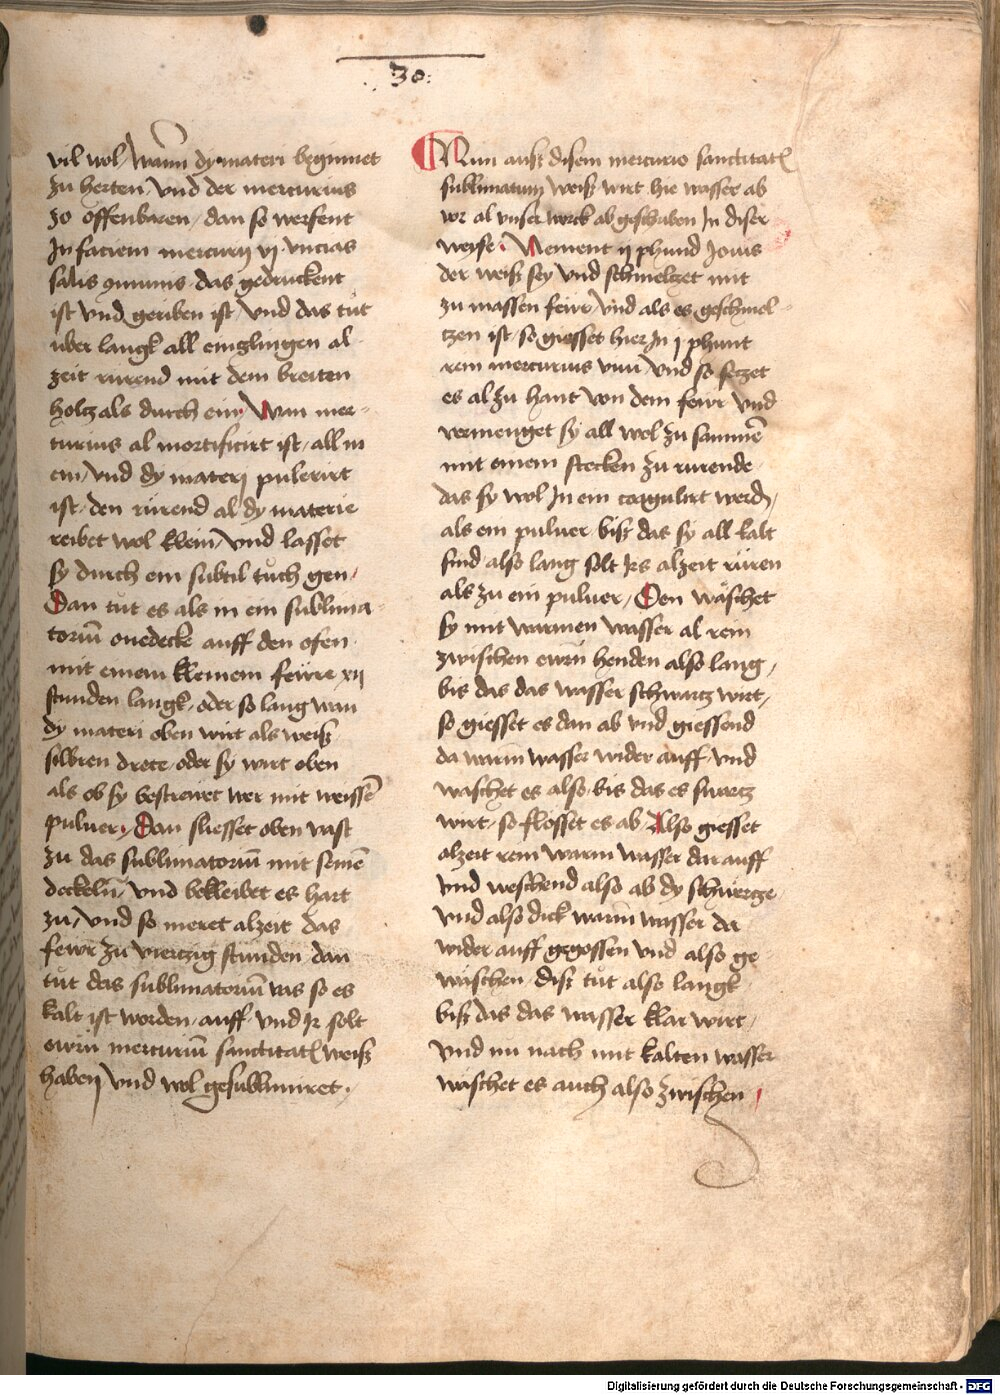 30
vil wol / wann dy materi beginnet
zu herten / und der mercurius
zo offenbaren / dan so werfent
In faciem mercurij vj vncias
salis 9munis das gedruckent
ist vnd geriben ist / vnd das tut
uber langk all einzlingen al
zeit rürend mit dem breiten
holtz als durch ein / Wan mer-
curius al mortificirt ist / all in
ein / vnd dy materj puluerirt
ist / den rürend al dy materie
reibet wol klein / vnd lasset
sy durch ein subtil tuch gen /
Dan tut es als in ein sublima
toriu᷃ onedecke auff den ofen
mit einem kleinem feüre xij
stunden langk / oder so lang wan
dy materi oben wirt als weiß
silbren drete / oder sy wirt oben
als ob sy bestreuet wer mit weissē
puluer / Dan sliesset oben vast
zu das sublimatoriū mit seinē
deckeln / vnd bekleibet es hart
zu / vnd so meret alzeit das
fewr zu viertzig stunden dan
tut das sublimatoriū vas so es
kalt ist worden / auff vnd Ir solt
ewrn mercuriū sanctitatꝭ weiß
haben vnd wol gesublimiret .
Nun auß disem mercurio sanctitatꝭ
sublimatum weiß wirt hie wasser ab
vor al vnser werck ab geschaben In diser
weyse . Nement ij phund Jouis
der weiß sey vnd schmeltzet mit
zu massen feire vnd als es geschmel
tzen ist / so giesset hier In j phunt
rein mercurius viuu᷃ / vnd so setzet
es al zu hant von dem fewr vnd
vermenget sy all wol zu sammē
mit einem stecken zu rurende
das sy wol In ein coagulirt werdn /
als ein puluer biß das sy all kalt
sind also lang solt Irs alzeit rüren
als zu ein puluer / Den wäschet
sy mit warmen wasser al rein
zwischen ewrn henden also lang /
bis das das wasser schwartz wirt /
so giesset es dan ab vnd giessend
da warm wasser wider auff / vnd
waschet es also bis das es swartz
wirt / so flösset es ab / Also giesset
alzeit rein warm wasser dar auff
vnd weschend also ab dy schwertze
vnd also dick warm wasser da
wider auff gegossen vnd also ge
wäschen / diß tut also langk
biß das das wasser klar wirt /
vnd nu nach mit kalten wasser
wäschet es auch also zwischen /
Digitalisierung gefördert durch die Deutsche Forschungsgemeinschaft - DFG